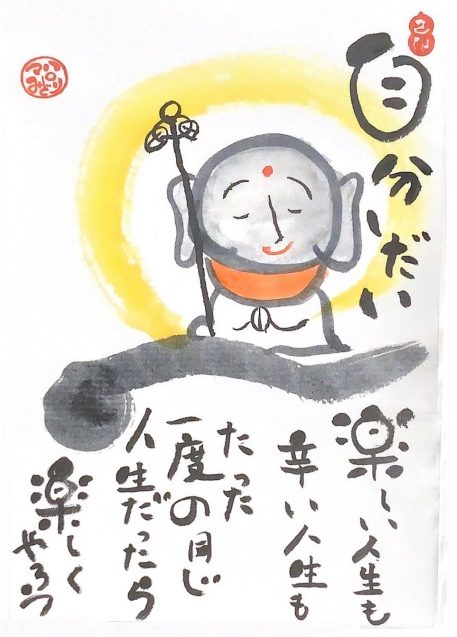 自分しだい
楽しい人生も
辛い人生も
たった
一度の同じ
人生だったら
楽しく
やろう